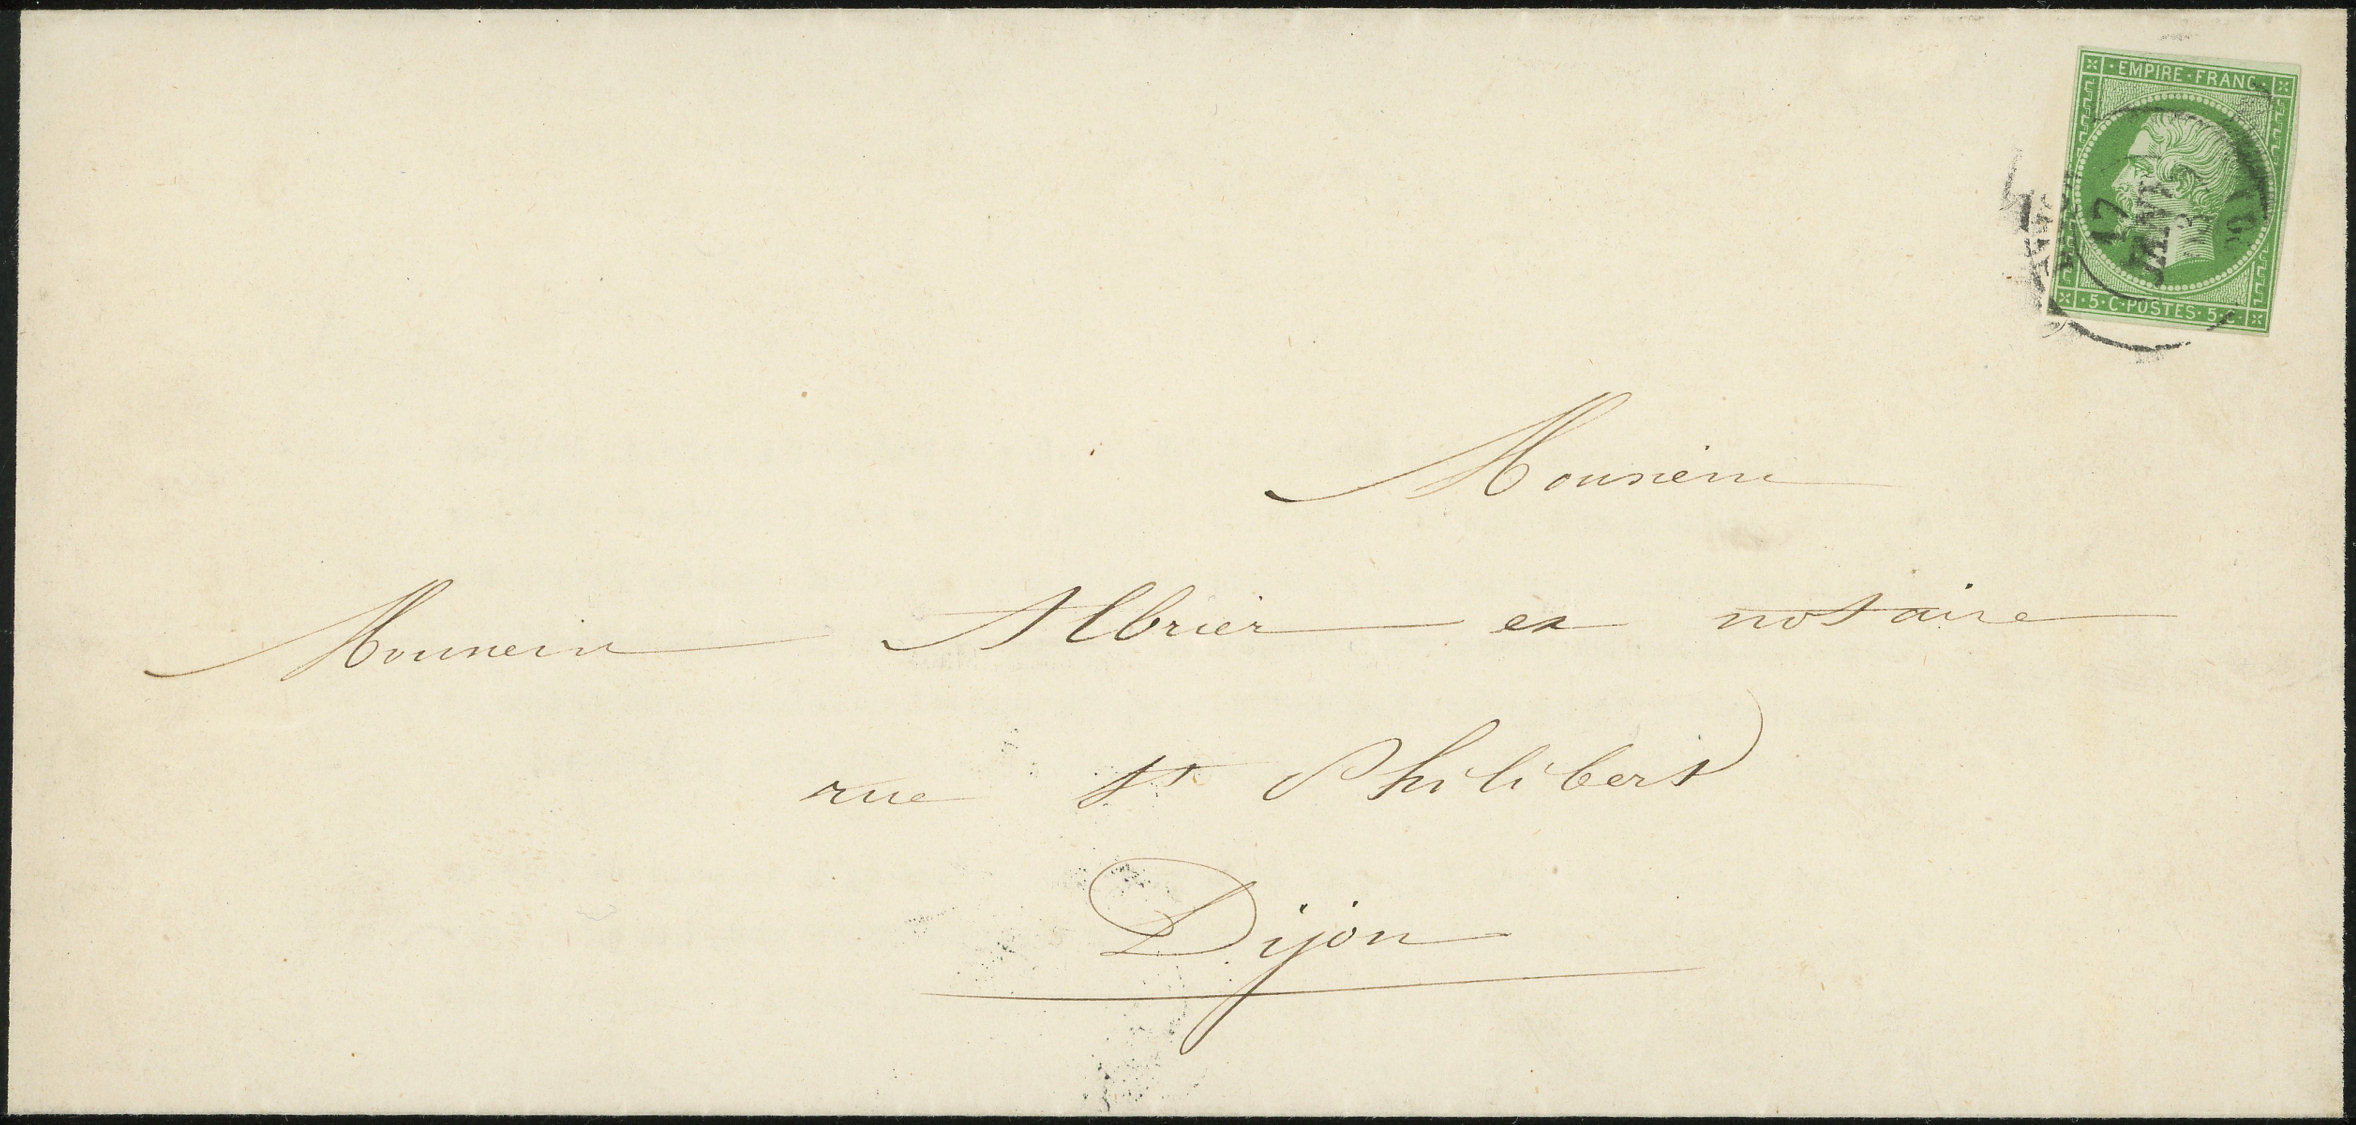 EMPIRE · FRANC ·
17
JANV
5 · C · POSTES · 5 · C ·
Monsieur
Monsieur Albrier ex notaire
rue St Philibert
Dijon